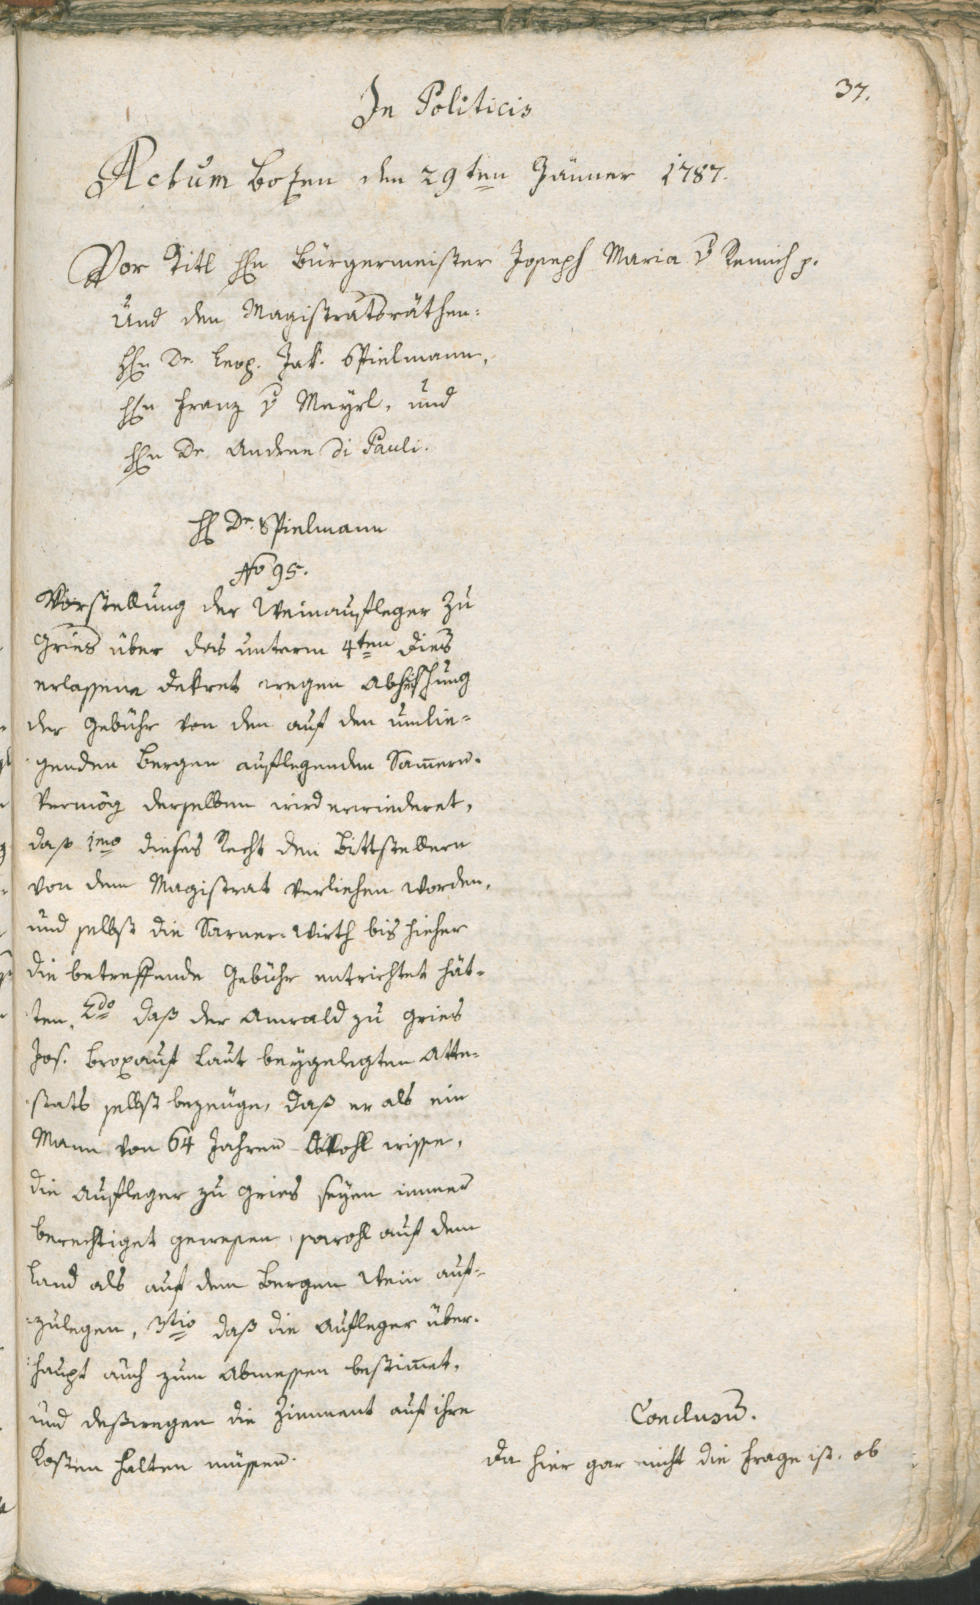 37.
In Politicis
Actum Bozen den 29ten Jänner 1787.
Vor Titl HHn Bürgermeister Joseph Maria v Remich p.
und den Magistratsräthen:
HHn Dr. Leop. Jak. Spielmann,
HHn Franz v Mayrl, und
HHn Dr. Andree Di Pauli.
HH Dr. Spielmann
No 95.
Vorstellung der Weinaufleger zu
Gries über das unterm 4ten dies
erlassene Dekret wegen
der Gebühr von den auf den umlie-
genden Bergen auflegenden Sarnern.
Vermög derselben wird erwiederet,
daß 1mo dieses Recht den Bittstellern
von dem Magistrat verliehen worden,
und selbst die Sarner-Wirth bis hieher
die betreffende Gebühr entrichtet hät-
ten, 2do daß der Anwald zu Gries
Jos. laut beygelegten Atte-
stats selbst bezeuge, daß er als ein
Mann von 64 Jahren wohl wisse,
die Aufleger zu Gries seyen immer
berechtiget gewesen, sowohl auf dem
Land als auf dem Bergen Wein auf-
zulegen, 3tio daß die Aufleger über-
haupt auch zum Abmessen bestimet,
und deßwegen die Zimment auf ihre
Kosten halten müssen.
Conclusum.
Da hier gar nicht die Frage ist, ob